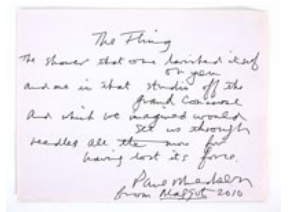 The Fling
The shower that once lavished itself
on you
and me in that studio off the
Grand Concourse
and which we imagined would
see us through
needles all the more for
having lost its force.
Paul Muldoon
from Maggot 2010